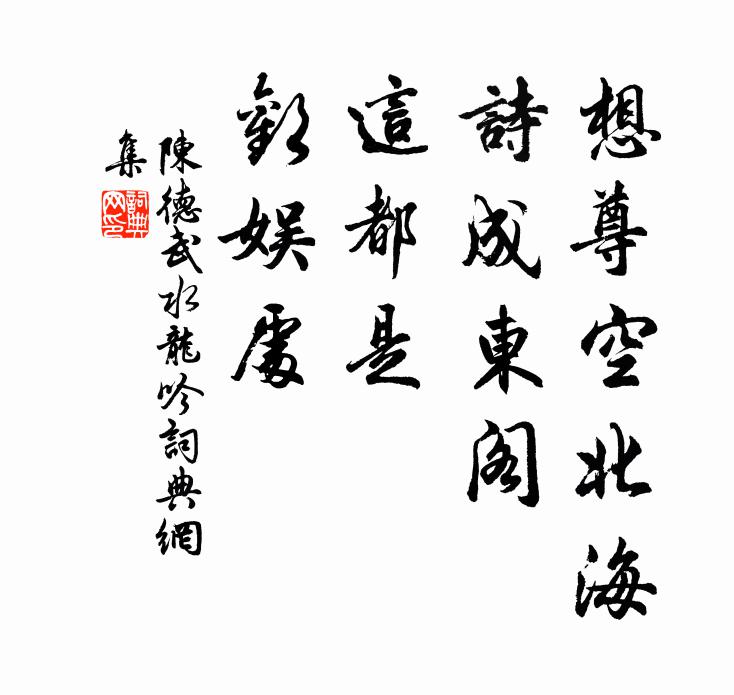 想尊空北海
詩成東閣
這都是
歡娛處
陳德武水龍吟詞典網
集
詞典
网印